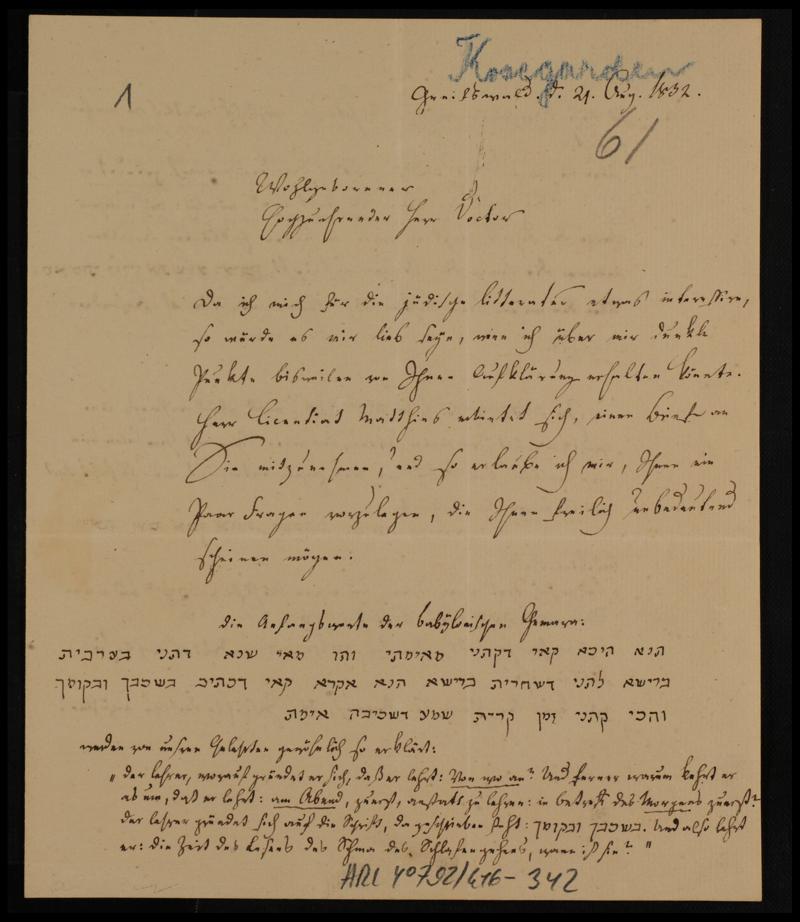 Kosegarten
1
Greifswald. d. 21. Aug. 1832.
61
Wohlgeborener
Hochzuehrender Herr Doctor
Da ich mich für die jüdische litteratur etwas interessire,
so würde es mir lieb seyn, wenn ich über mir dunkle
Punkte bisweilen von Ihnen Aufklärung erhalten könnte.
Herr Licentiat Matthies erbietet sich, einen Brief an
Sie mitzunehmen, und so erlaube ich mir, Ihnen ein
Paar Fragen vorzulegen, die Ihnen freilich unbedeutend
scheinen mögen.
die Anfangsworte der babylonischen Gemara:
תנא היכא קאי דקתני מאימתי ותו מאי שנא דתני בערבית
ברישא לתני דשחרית ברישא תנא אקרא קאי דכתיב בשכבך ובקומך
והכי קתני זמן קרית שמע דשכיבה אימת
werden von unsren Gelehrten gewöhnlich so erklärt:
„der lehrer, worauf gründet er sich, daß er lehrt: Von wo an? Und ferner warum kehrt er
es um, daß er lehrt: am Abend, zuerst, anstatt zu lehren: in betreff des Morgens zuerst?
der lehrer gründet sich auf die Schrift, da geschrieben steht: בשכבך ובקומך. Und also lehrt
er: die Zeit des Lesens des Schma des Schlafengehens, wann ist sie?"
ARC 4° 792/416-342